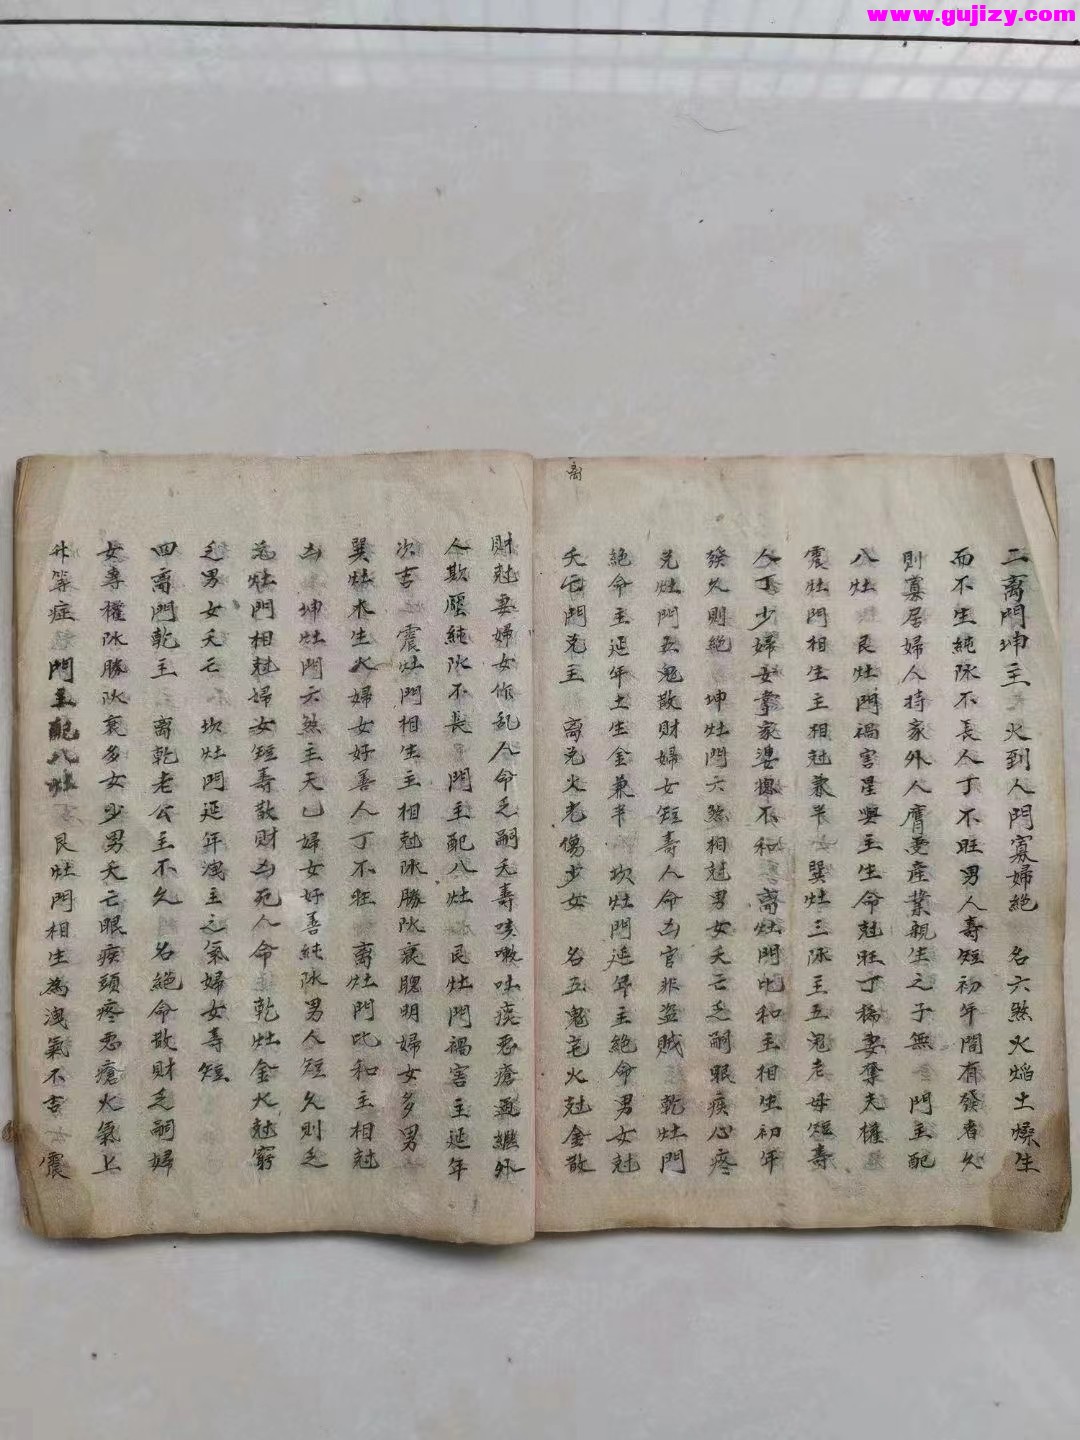 www.gujizy.com
离
二离門坤主 火到人門寡婦絕 名六煞火焰土燥生
而不生純陰不長人丁不旺男人壽短初年間有發者久
則寡居婦人持家外人膺受產業親生之子無 門主配
八灶 艮灶門禍害星與主生命尅旺丁橋妻奪夫權
震灶門相生主相尅兼半 巽灶三陰主五鬼老母短壽
人丁少婦女掌家婆媳不和 离灶門比和主相生初年
發久則絕 坤灶門六煞相尅男女夭亡乏嗣眼疾心疼
兌灶門五鬼散財婦女短壽人命凶官非盜賊 乾灶門
絕命主延年土生金兼半 坎灶門延年主絕命男女尅
夭 三離門兌主 离兌火光傷少女 名五鬼宅火尅金散
財尅妻婦女作乱人命乏嗣夭壽咳嗽吐痰惡瘡 繼外
人欺壓純陰不長 門主配八灶 艮灶門禍害主延年
次吉 震灶門相生主相尅陰勝陽衰聰明婦女多男
巽灶木生火婦女好善人丁不旺 离灶門比和主相尅
凶 坤灶門六煞主天乙婦女好善純陰男人短久則乏
兌灶門相尅婦女短壽散財凶死人命 乾灶金火尅窮
乏男女夭亡 坎灶門延年洩主之氣婦女壽短
四离門乾主 离乾老公主不久 名絕命散財乏嗣婦
女專權陰勝陽衰多女少男夭亡眼疾頭疼惡瘡火氣上
升等症 門主配八灶 艮灶門相生為洩氣不吉 震